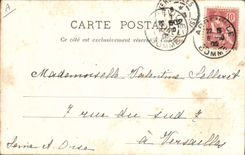 A
CARTE POSTALE
Ce côté est exclusivement réservé
10
Mademoiselle Valentine Selleret
7 rue du sud
à Versailles
Seine et Oise